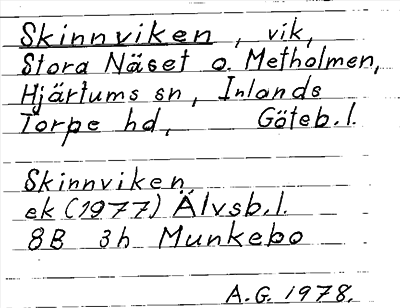 Skinnviken, vik,
Stora Näset o. Metholmen,
Hjärtums sn, Inlands
Torpe hd, Göteb.l.
Skinnviken
ek (1977) Älvsb.l.
8B 3h Munkebo
A.G. 1978.